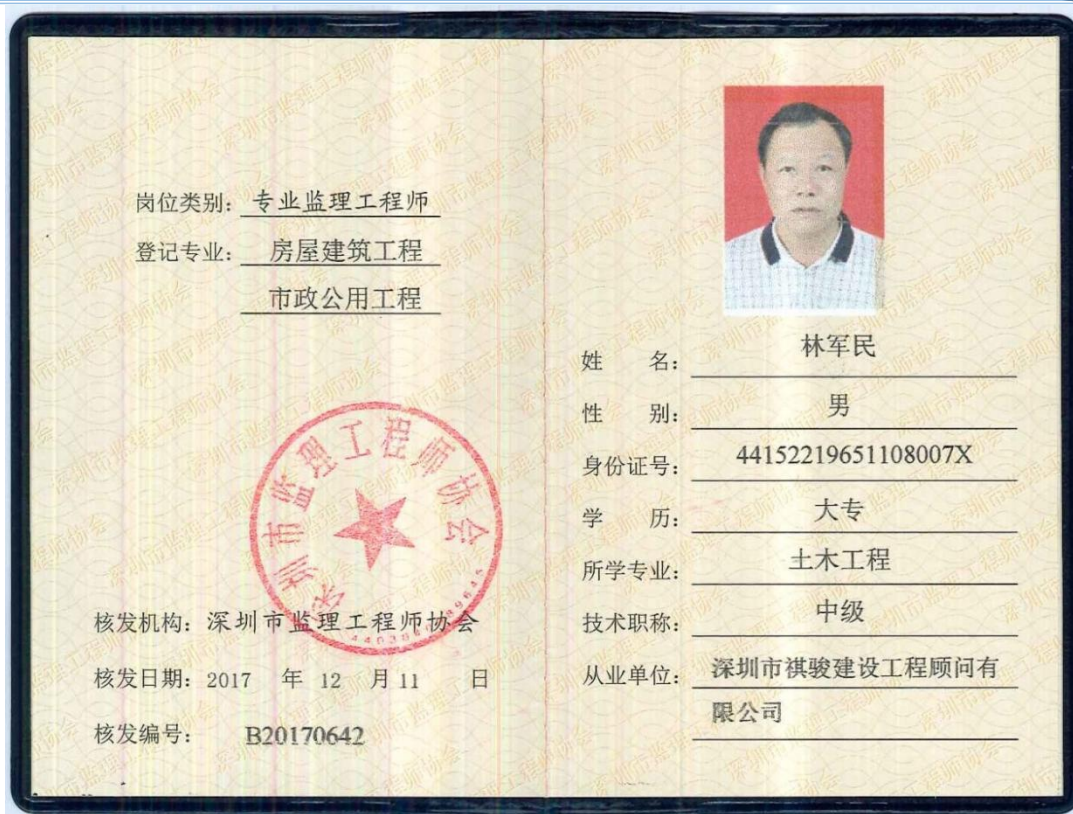 岗位类别：专业监理工程师
登记专业：房屋建筑工程
市政公用工程
深圳市监理工程师协会
核发机构：深圳市监理工程师协会
核发日期：2017 年 12 月 11 日
核发编号：B20170642
姓 名：林军民
性 别：男
身份证号：44152219651108007X
学 历：大专
所学专业：土木工程
技术职称：中级
从业单位：深圳市祺骏建设工程顾问有
限公司